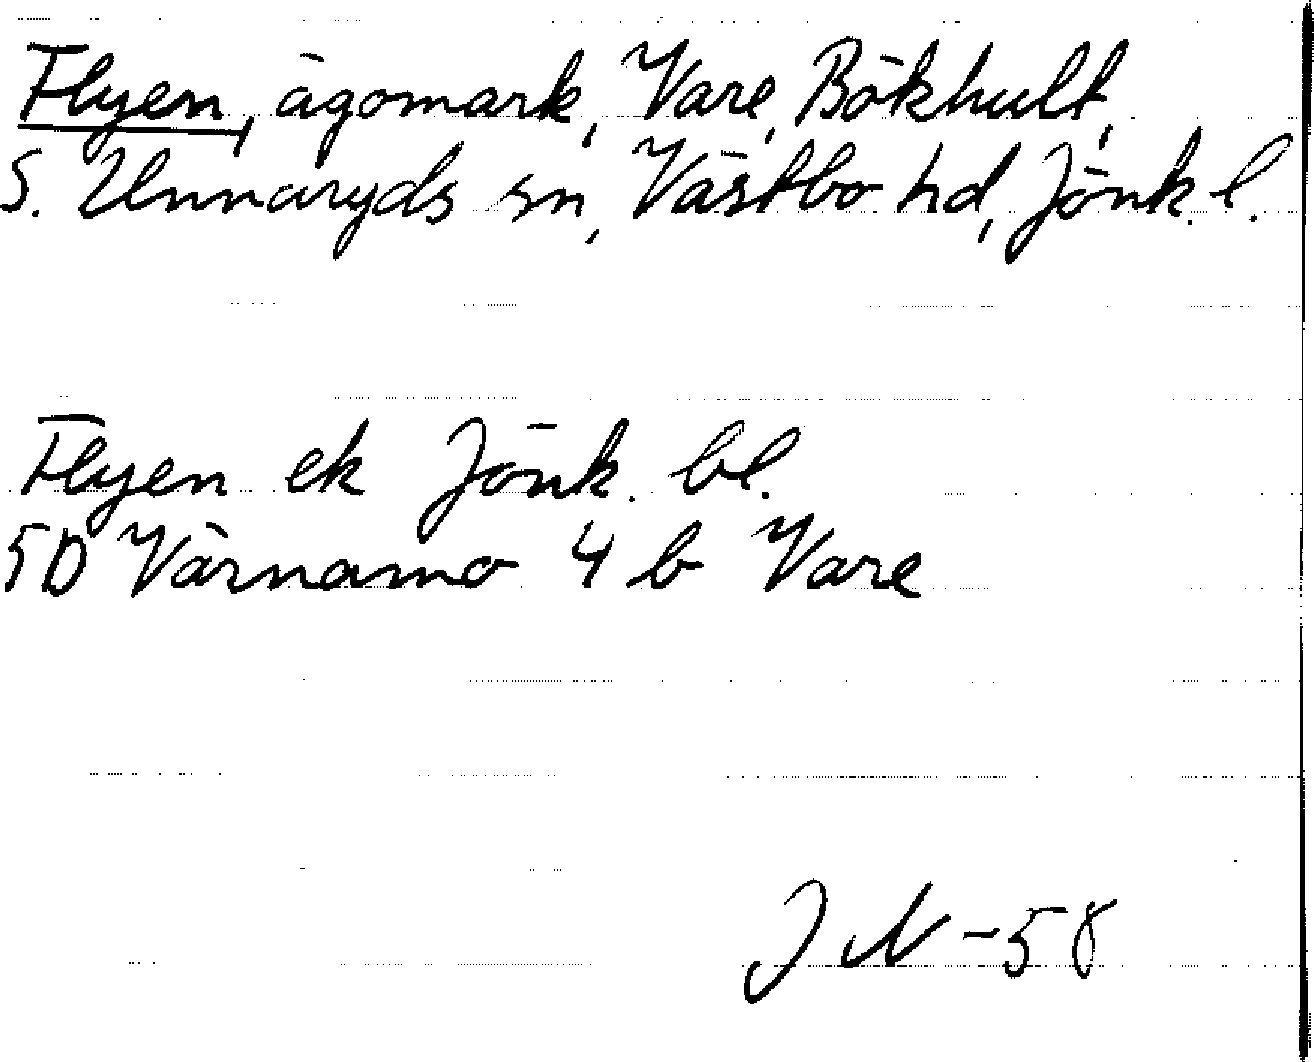 Flyen, ägomark, Vare, Bökhult,
S. Unnaryds sn, Västbo hd, Jönk. l.
Flyen ek Jönk. bl.
5D Värnamo 4 b Vare
JN -58